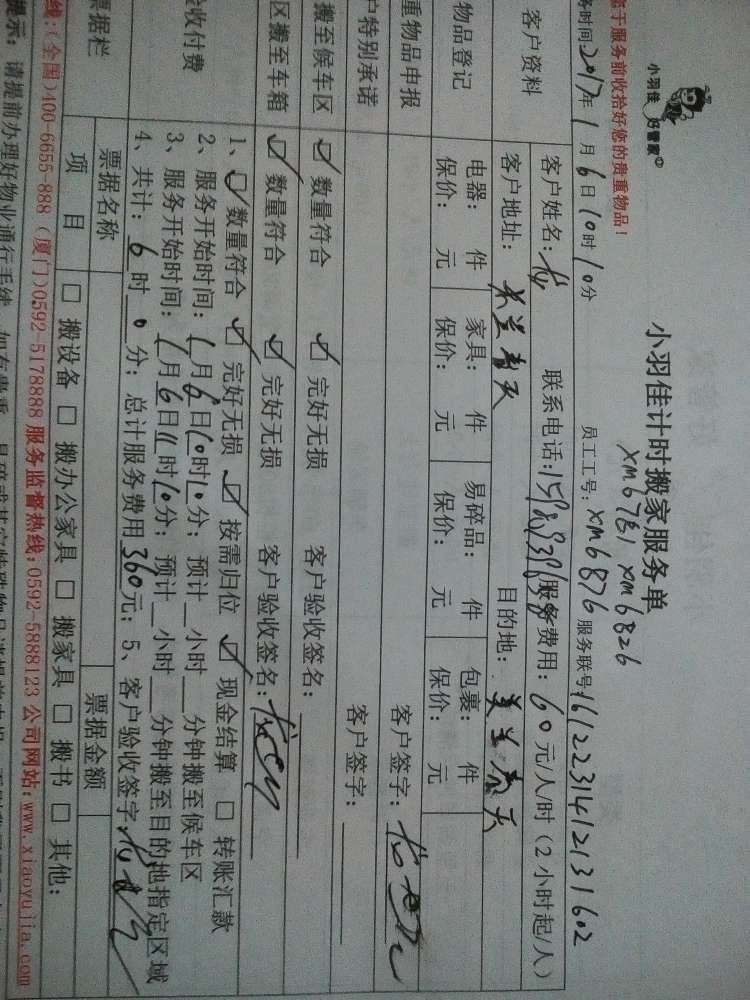 小羽佳 好管家
于服务前收拾好您的贵重物品!
小羽佳计时搬家服务单
xm6826
务时间:2017年1月6日10时10分
员工工号: xm6876
服务联号:1612231412131602
客户资料
客户姓名:
联系电话:
服务费用: 60元/人/时(2小时起/人)
客户地址: 米兰春天
目的地: 米兰春天
物品登记
电器: 件 家具: 件 易碎品: 件 包裹: 件
保价: 元 保价: 元 保价: 元 保价: 元
重物品申报
客户签字:
户特别承诺
客户签字:
搬至候车区
数量符合 完好无损 客户验收签名:
区搬至车箱
数量符合 完好无损 客户验收签名:
验收付费
1、数量符合 完好无损 按需归位 现金结算 □ 转账汇款
2、服务开始时间: 1月6日10时10分; 预计__小时__分钟搬至候车区
3、服务开始时间: 1月6日11时10分; 预计__小时__分钟搬至目的地指定区域
4、共计: 6时0分; 总计服务费用360元; 5、客户验收签字:
票据栏
票据名称 票据金额
项 目 □ 搬设备 □ 搬办公家具 □ 搬家具 □ 搬书 □ 其他:
线:(全国)400-6655-888 (厦门)0592-5178888 服务监督热线:0592-5888123 公司网站:www.xiaoyujia.com
提示: 请提前办理好物业通行手续